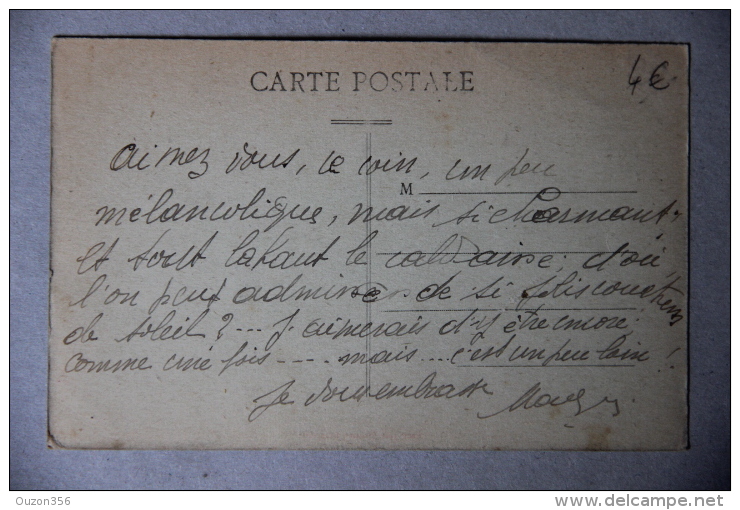 CARTE POSTALE
4€
aimez vous, ce coin, un peu
M
mélancolique, mais si charmant.
Et tout là haut le calvaire, d'où
l'on peut admirer de si jolis couchers
de soleil ? ... J'aimerais d'y être encore
comme une fois .... mais ... c'est un peu loin !
Je vous embrasse
Ouzon356
delcampe.net